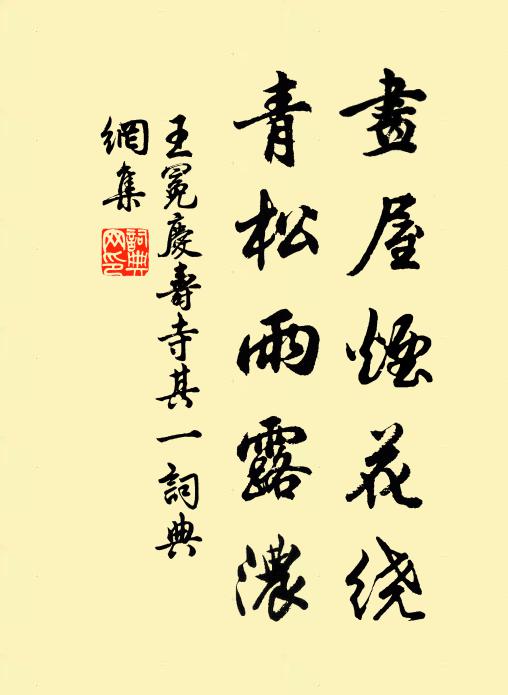 畫屋煙花绕
青松雨露濃
王冕慶壽寺其一詞典
網集
詞典网印